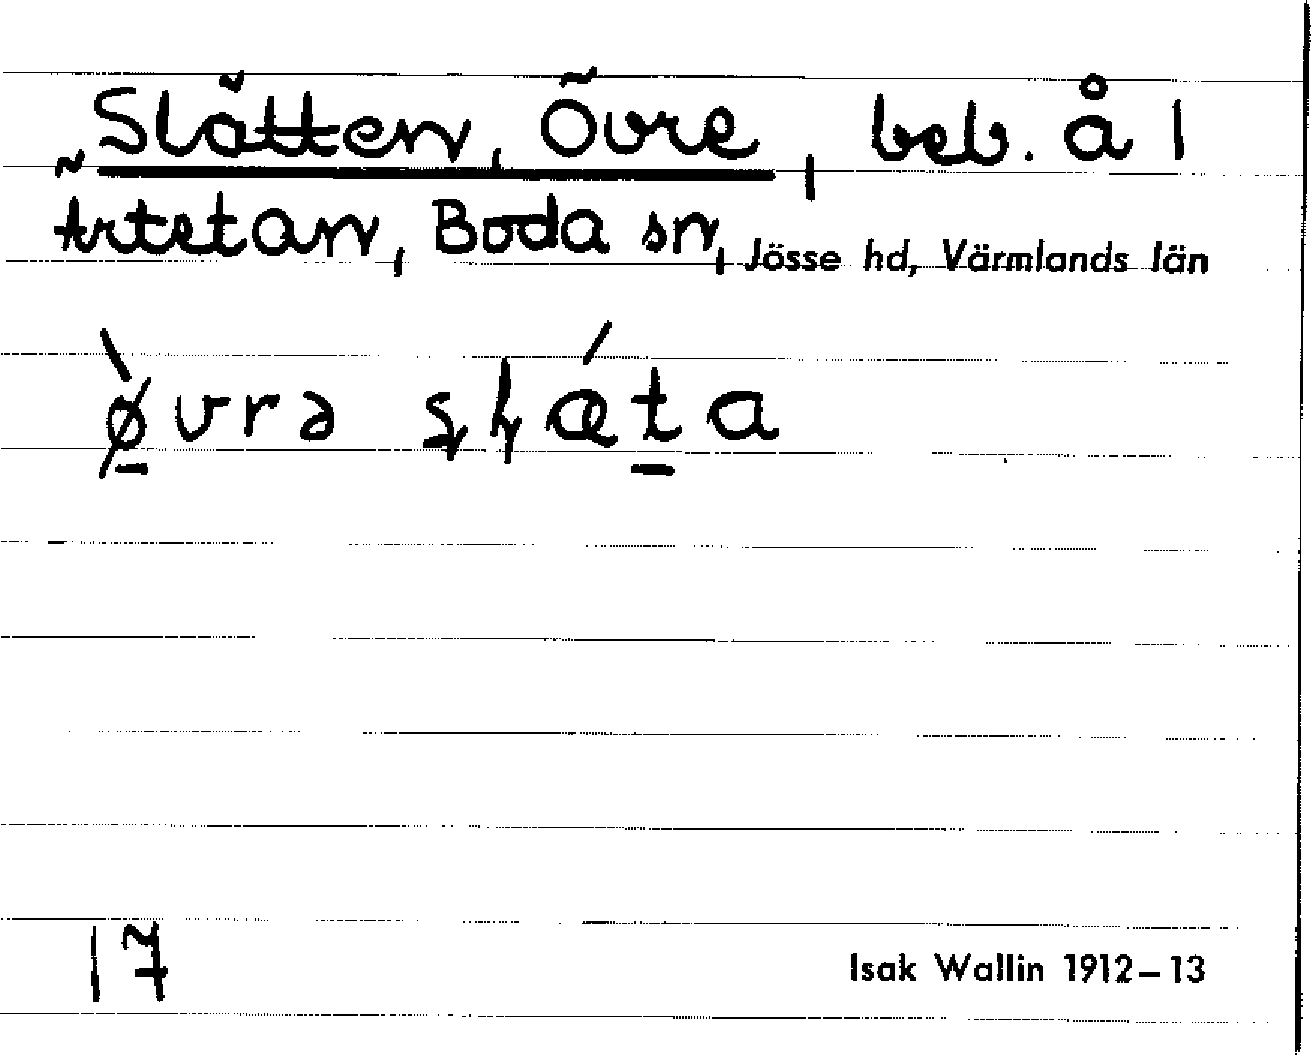 Slätten, Övre, beb. å 1
Ärtetan, Boda sn, Jösse hd, Värmlands län
øvrə ʂɧæta
17
Isak Wallin 1912–13